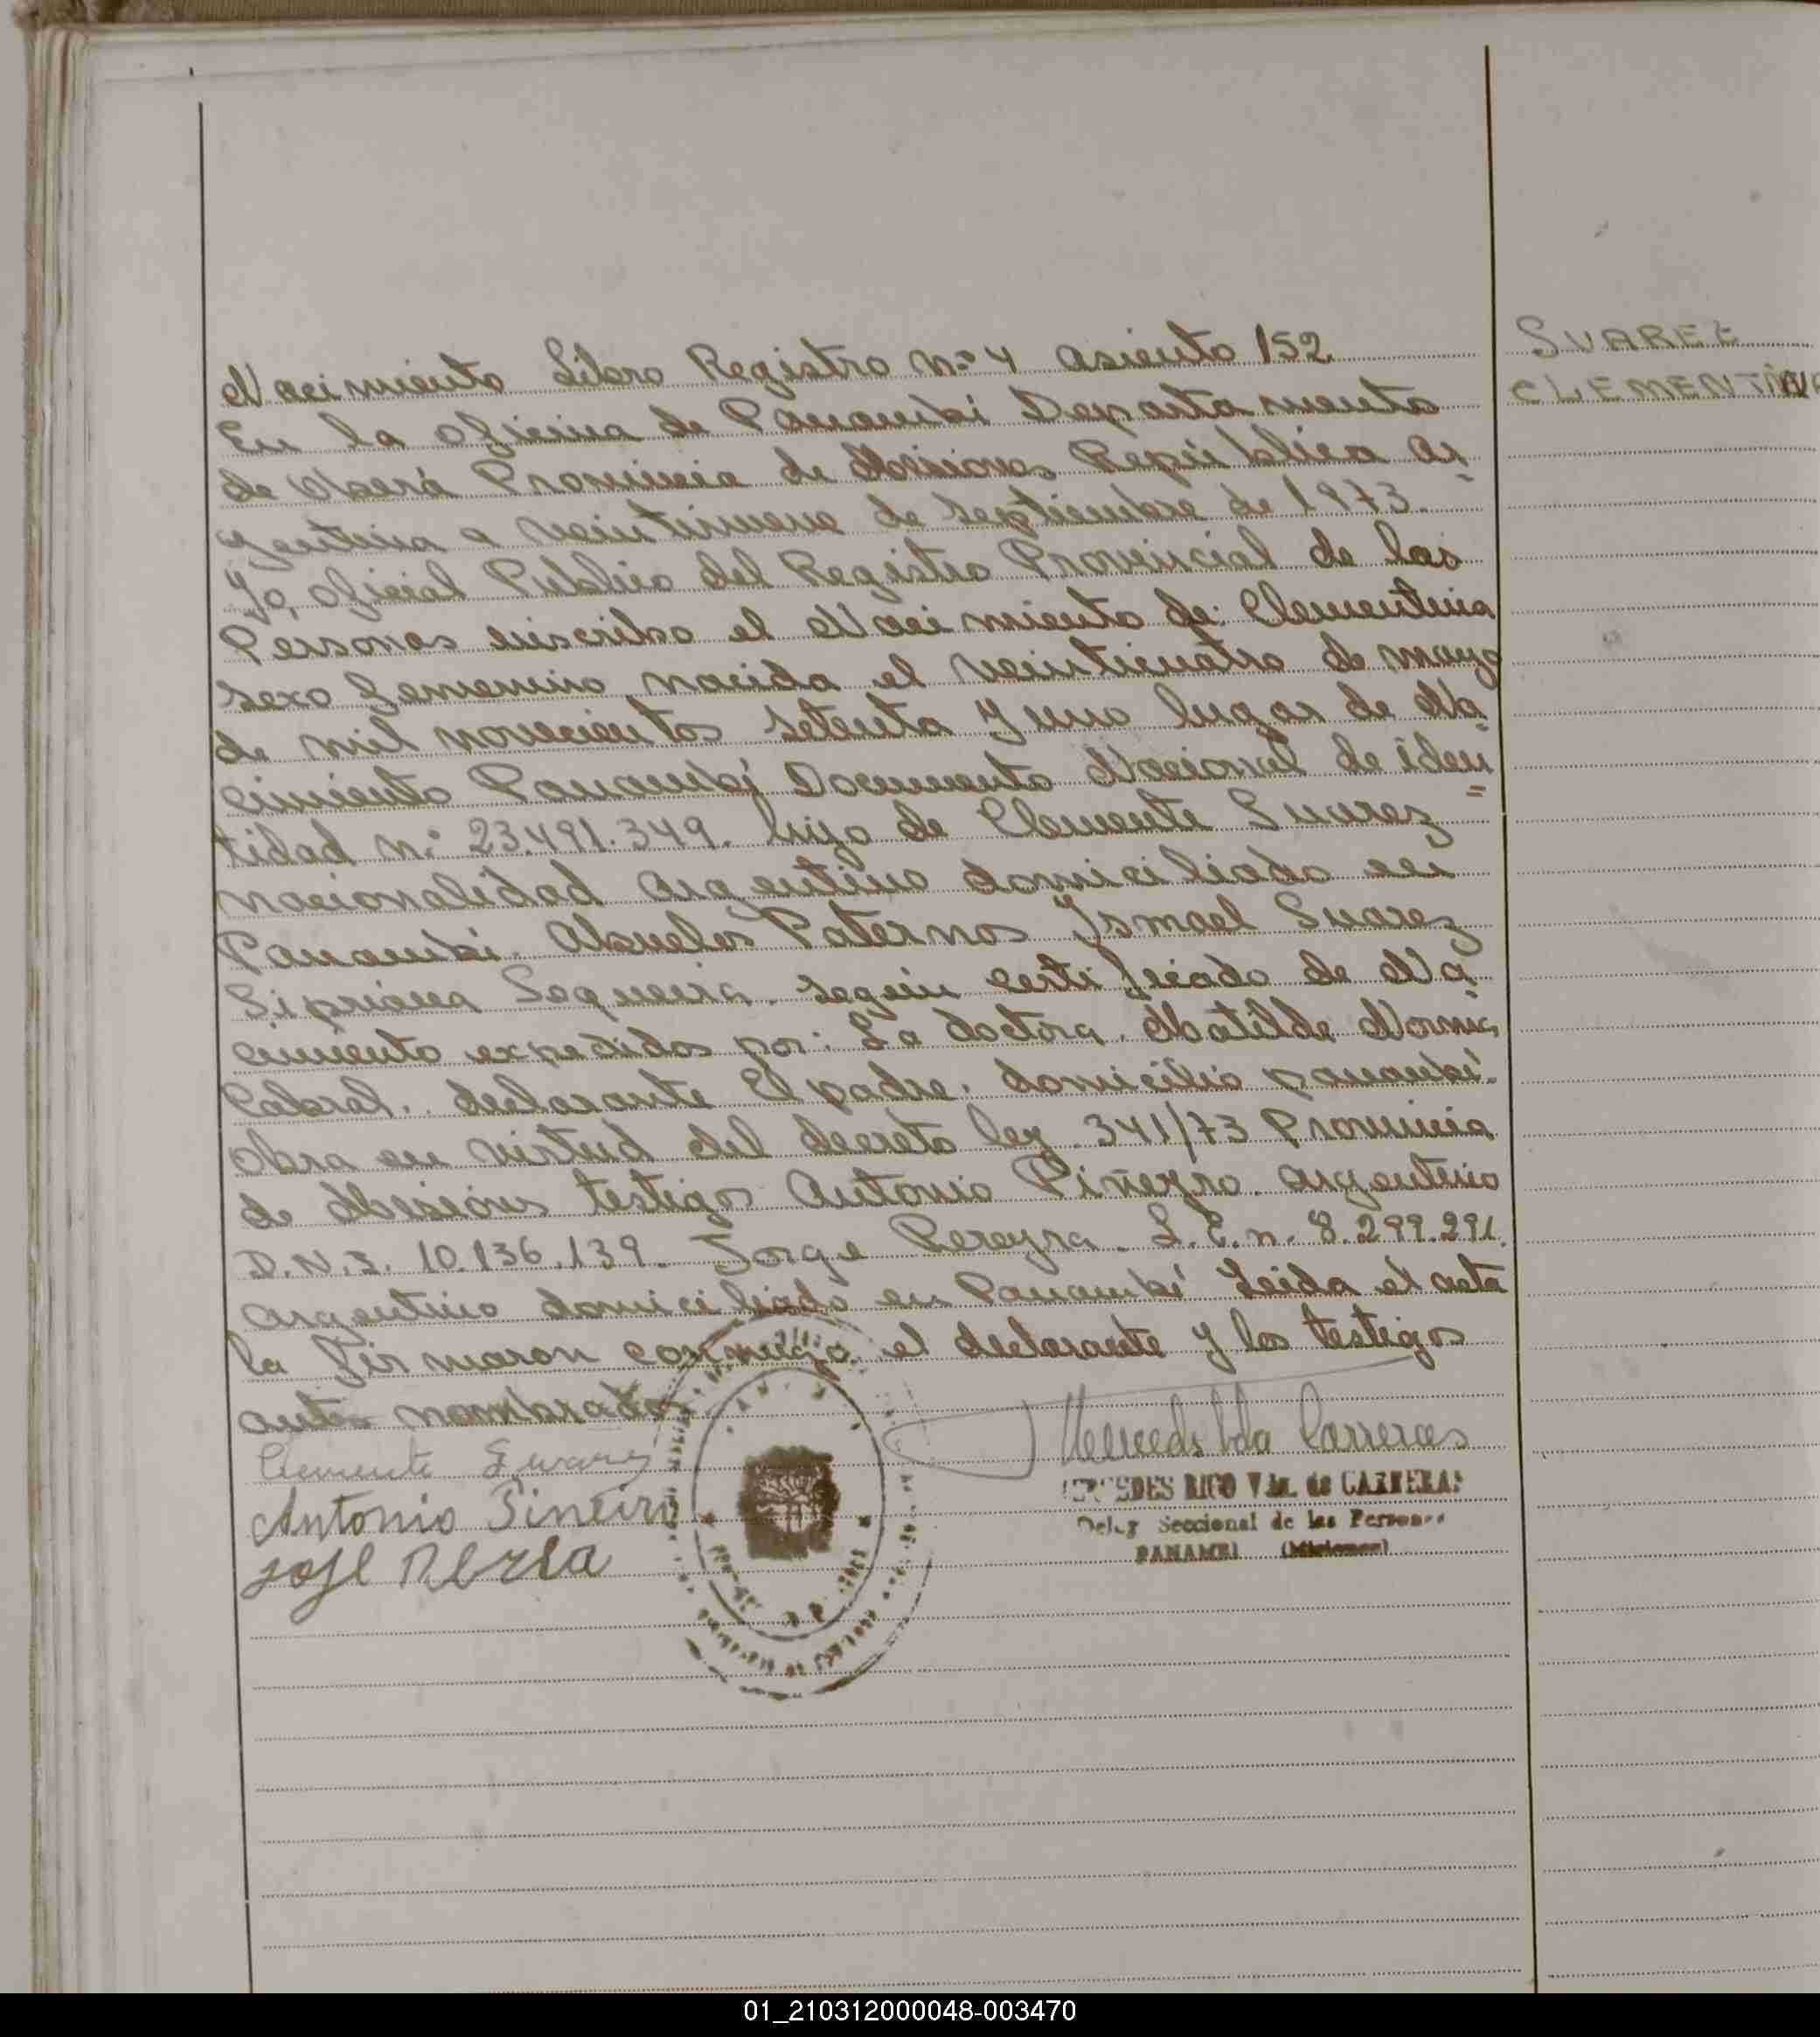 Nacimiento Libro Registro nº 4 asiento 152
SUAREZ
CLEMENTINA
En la oficina de Panambi Departamento
de Oberá Provincia de Misiones República Ar
gentina a veintinueve de septiembre de 1973.
Yo, oficial Publico del Registro Provincial de las
Personas inscribo el Nacimiento de: Clementina
sexo femenino nacida el veinticuatro de mayo
de mil novecientos setenta y uno lugar de Na
cimiento Panambi Documento Nacional de iden
tidad n: 23.491.349. hijo de Clemente Suarez
nacionalidad argentino domiciliado en
Panambi. Abuelos Paternos Ysmael Suarez
Sipriana Sequeira. según certificado de Na
cimiento expedidos por: La doctora. Matilde Norma
Cabral. declarante El padre. domicilio panambi.
obra en virtud del decreto ley 341/73 Provincia
de Misiones testigos Antonio Piñeyro. argentino
D.N.I. 10.136.139. Jorge Pereyra. L.E.n. 8.299.291.
argentino domiciliado en Panambi Leida el acta
la firmaron conmigo el declarante y los testigos
antes nombrados
Clemente Suarez
Antonio Piñeiro
José
Mercedes Vda Carreras
MERCEDES RICO Vda. de CARRERAS
Deleg Seccional de las Personas
PANAMBI (Misiones)
01_210312000048-003470